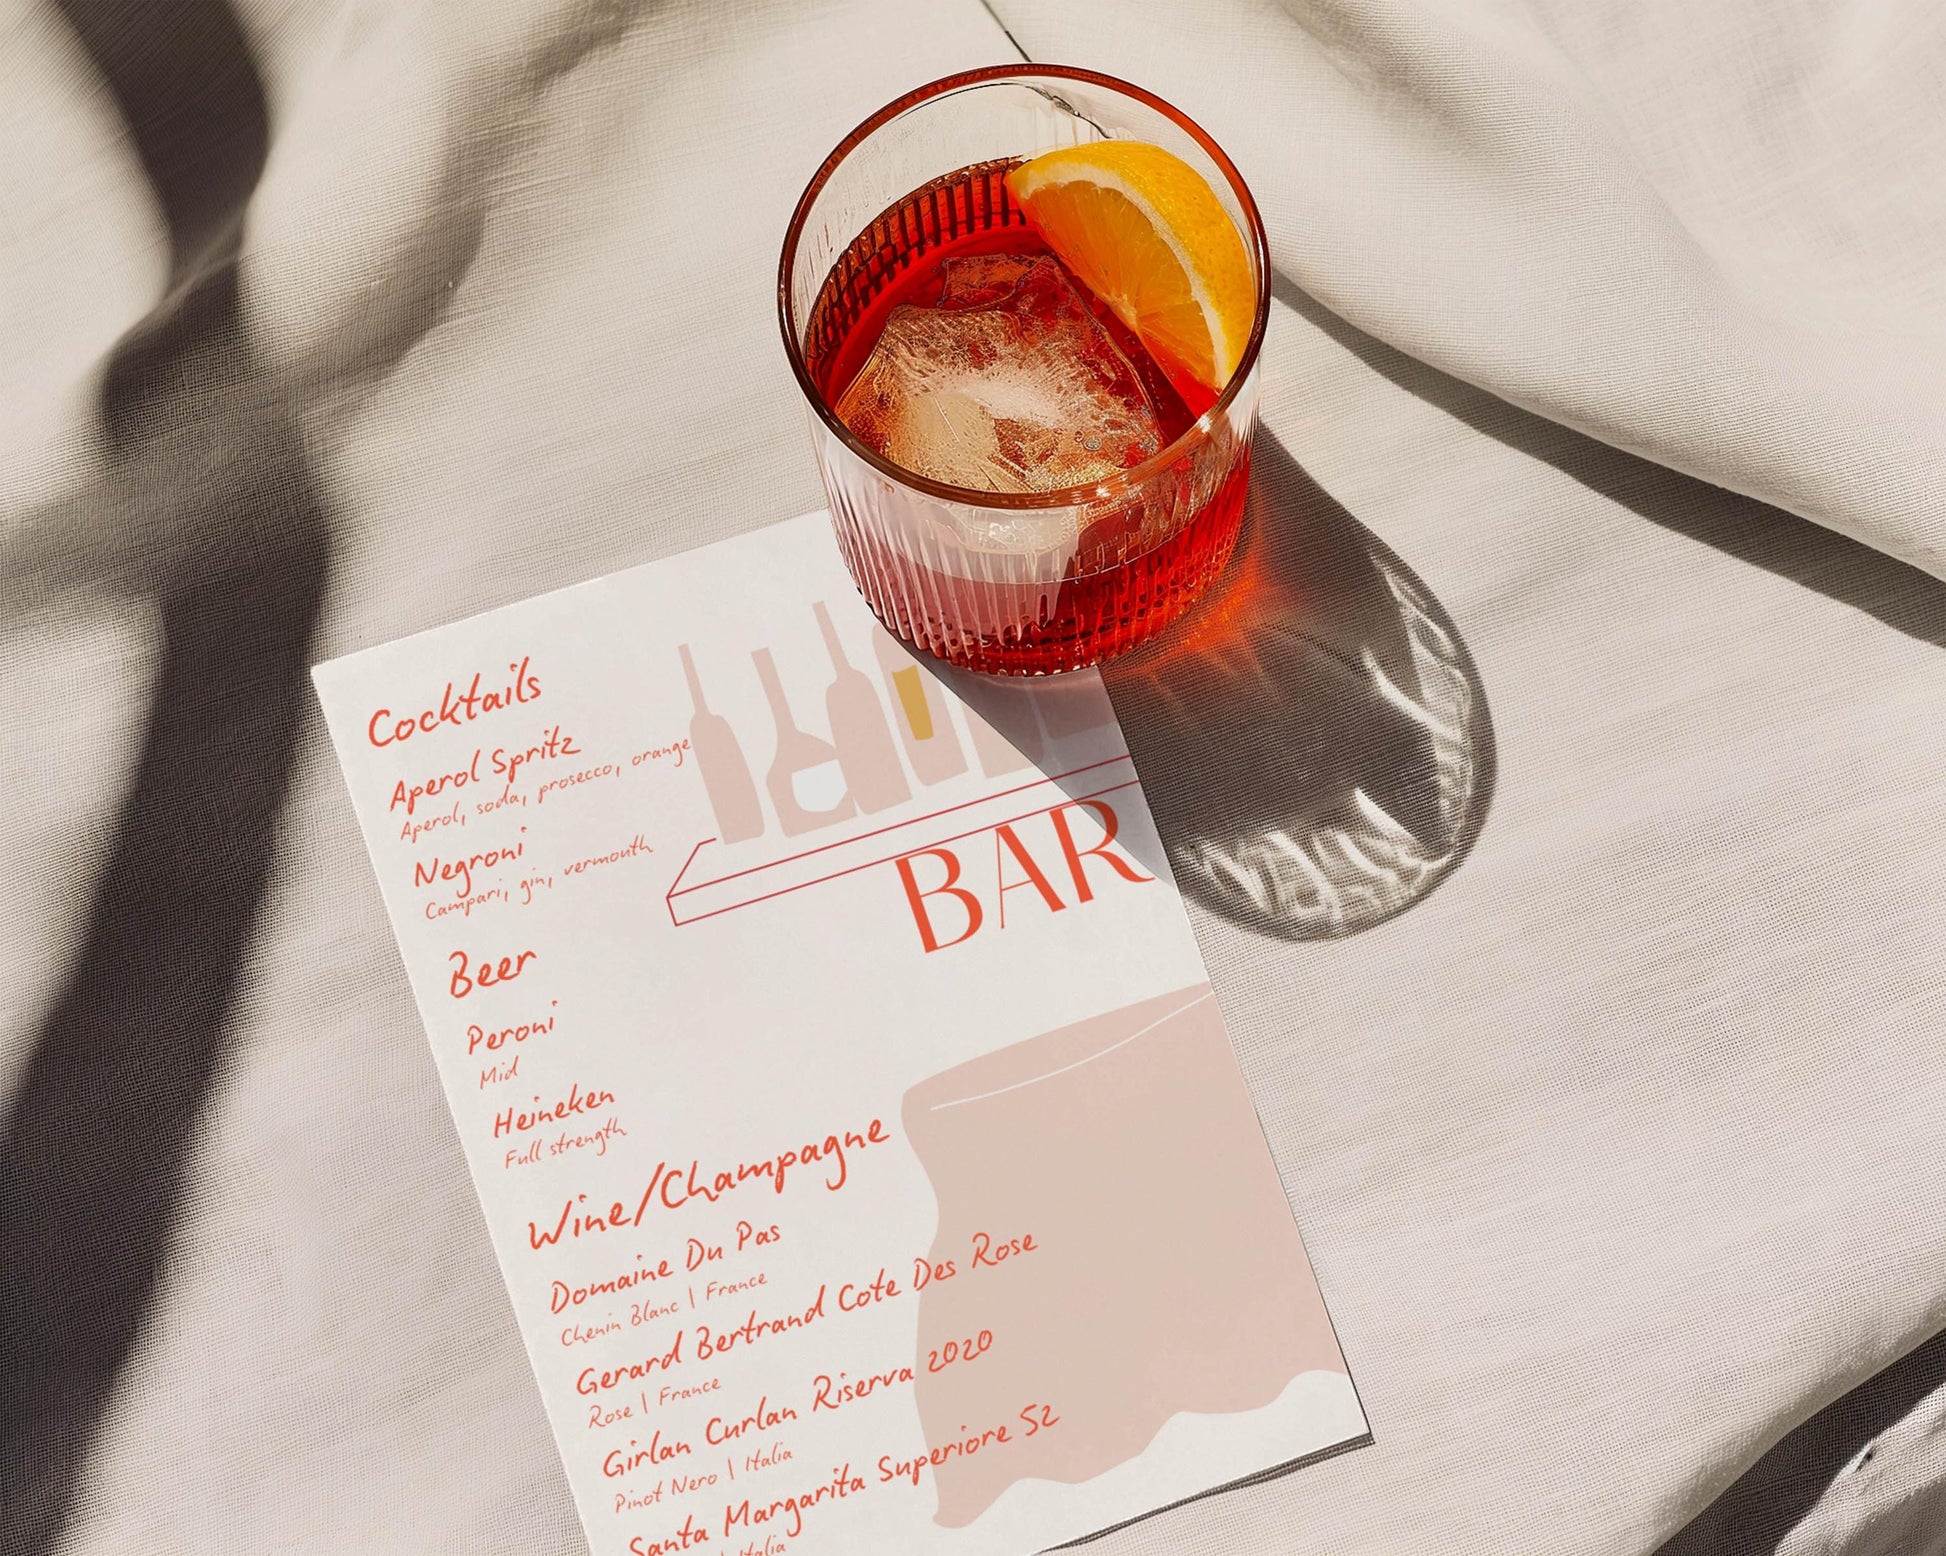 Cocktails
Aperol Spritz
Aperol, soda, prosecco, orange
Negroni
Campari, gin, vermouth
BAR
Beer
Peroni
Mid
Heineken
Full strength
Wine/Champagne
Domaine Du Pas
Chenin Blanc | France
Gerard Bertrand Cote Des Rose
Rose | France
Girlan Curlan Riserva 2020
Pinot Nero | Italia
Santa Margarita Superiore 52
| Italia